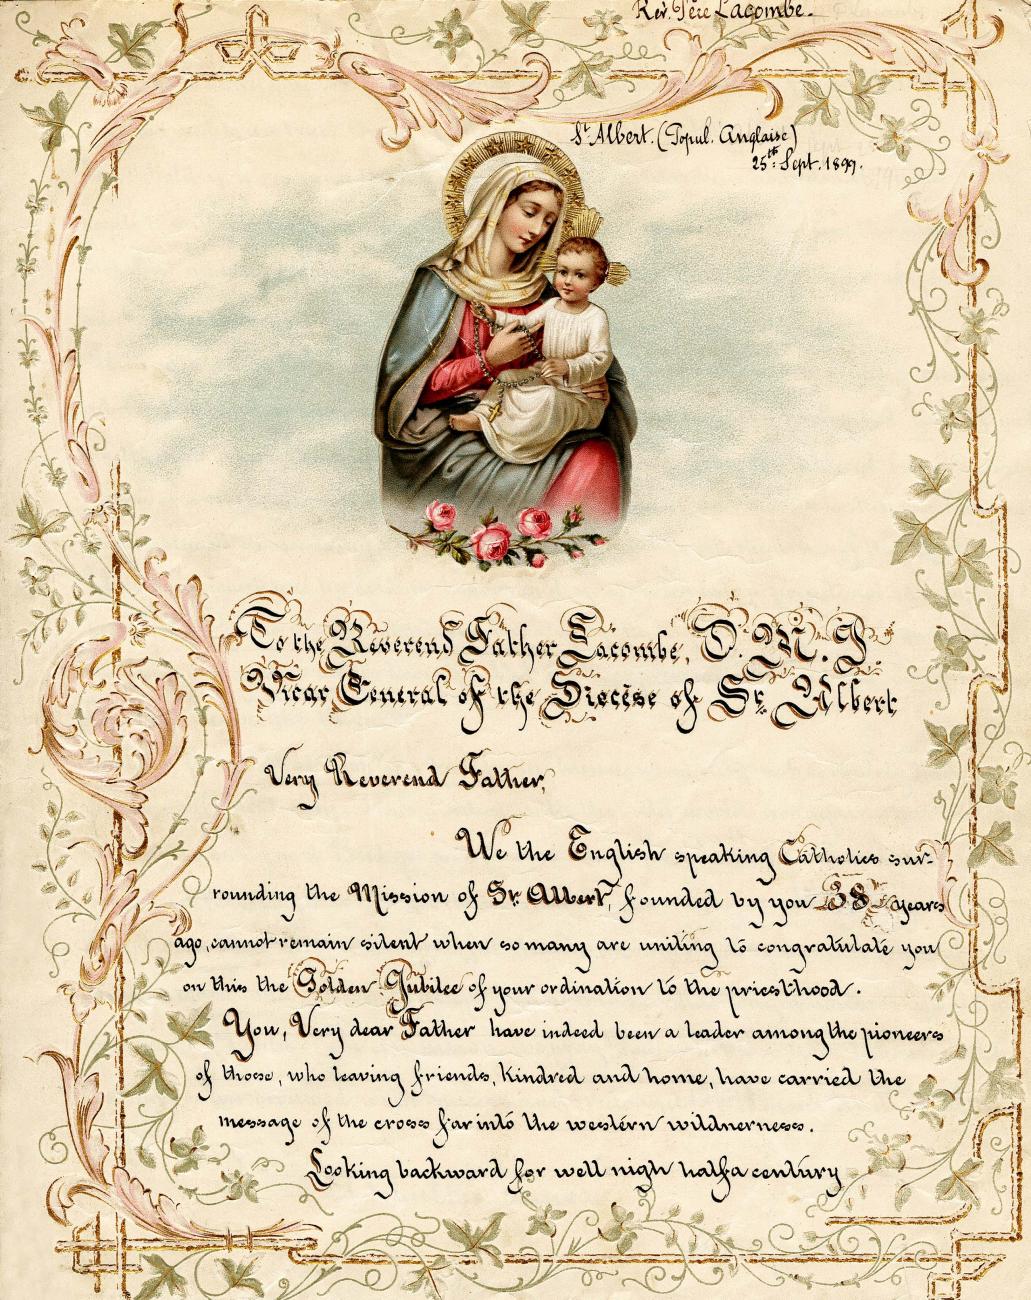 Rev. Père Lacombe.
St Albert. (Popul. Anglaise)
25th Sept. 1899.
To the Reverend Father Lacombe, O. M. I.
Vicar General of the Diocese of St. Albert
Very Reverend Father,
We the English speaking Catholics sur-
rounding the Mission of St. Albert, founded by you 38 years
ago, cannot remain silent when so many are uniting to congratulate you
on this the Golden Jubilee of your ordination to the priesthood.
You, Very dear Father have indeed been a leader among the pioneers
of those, who leaving friends, kindred and home, have carried the
message of the cross far into the western wildnerness.
Looking backward for well nigh half a century